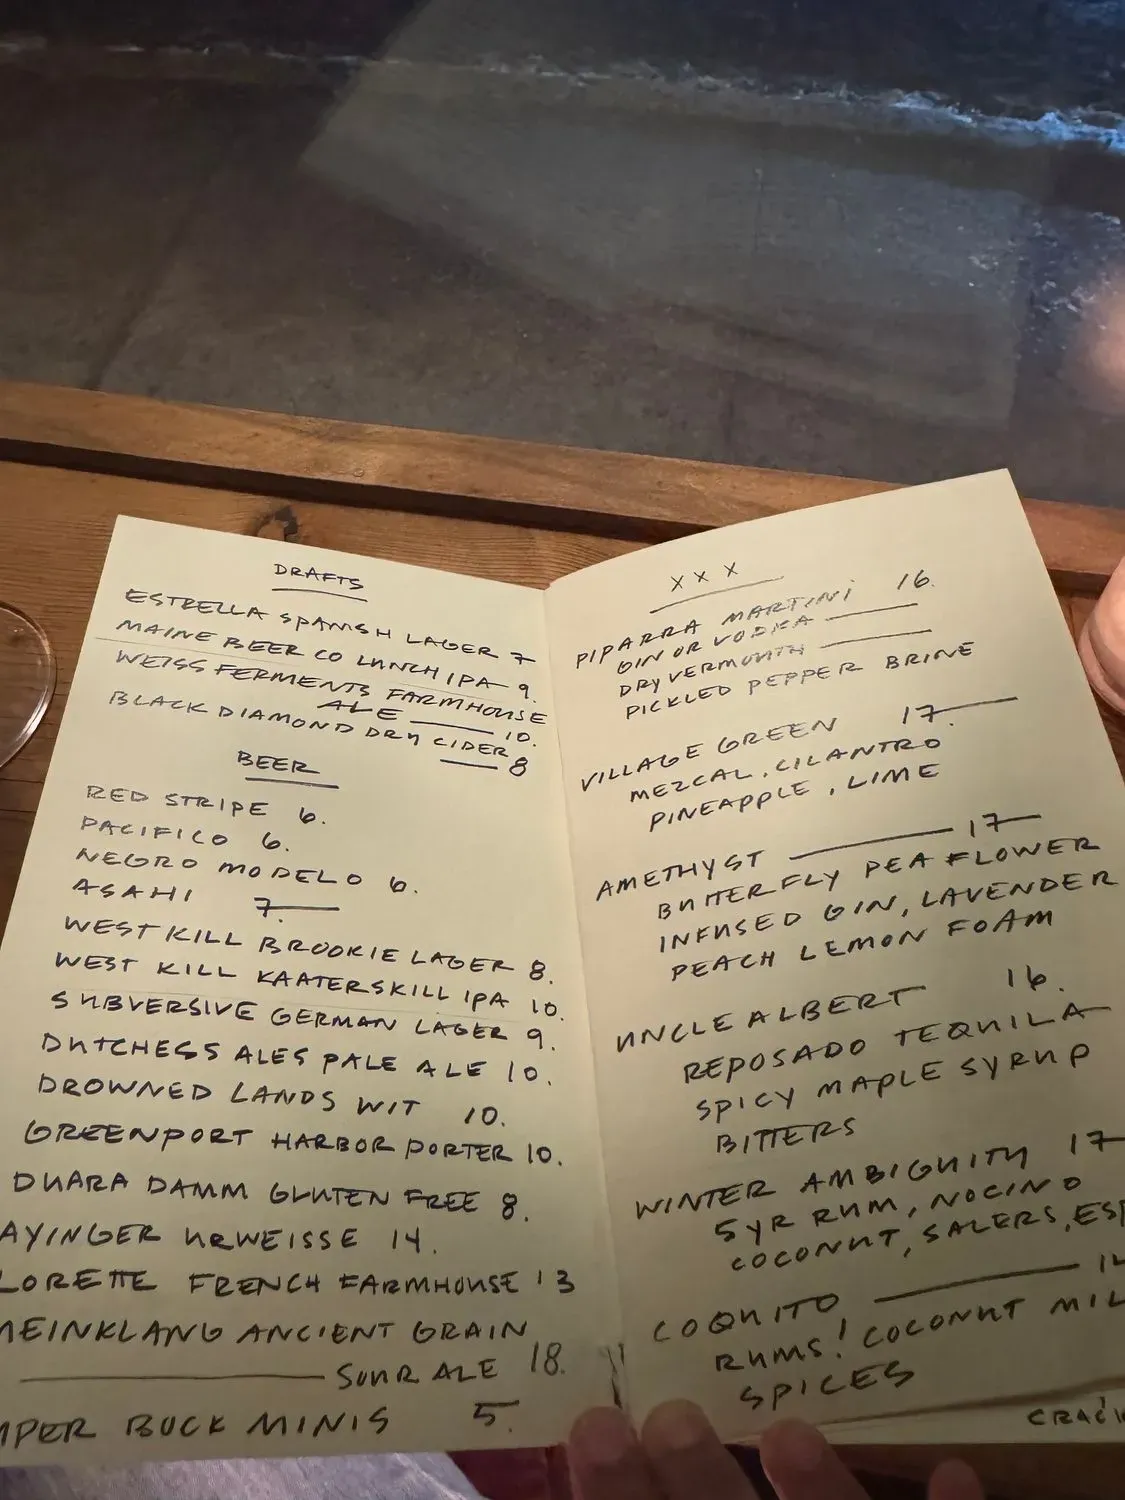 DRAFTS
ESTRELLA SPANISH LAGER 7
MAINE BEER CO LUNCH IPA 9.
WEISS FERMENTS FARMHOUSE
ALE 10.
BLACK DIAMOND DRY CIDER
8
BEER
RED STRIPE 6.
PACIFICO 6.
NEGRO MODELO 6.
ASAHI 7.
WEST KILL BROOKIE LAGER 8.
WEST KILL KAATERSKILL IPA 10.
SUBVERSIVE GERMAN LAGER 9.
DUTCHESS ALES PALE ALE 10.
DROWNED LANDS WIT 10.
GREENPORT HARBOR PORTER 10.
DUARA DAMM GLUTEN FREE 8.
AYINGER URWEISSE 14.
LORETTE FRENCH FARMHOUSE 13
MEINKLANG ANCIENT GRAIN
SOUR ALE 18.
MPER BUCK MINIS 5.
XXX
PIPARRA MARTINI 16.
GIN OR VODKA
DRY VERMOUTH
PICKLED PEPPER BRINE
VILLAGE GREEN 17.
MEZCAL, CILANTRO
PINEAPPLE, LIME
AMETHYST 17
BUTTERFLY PEA FLOWER
INFUSED GIN, LAVENDER
PEACH LEMON FOAM
UNCLE ALBERT 16.
REPOSADO TEQUILA
SPICY MAPLE SYRUP
BITTERS
WINTER AMBIGUITY 17
5 YR RUM, NOCINO
COCONUT, SALERS, ESP
COQUITO
RUMS! COCONUT MIL
SPICES